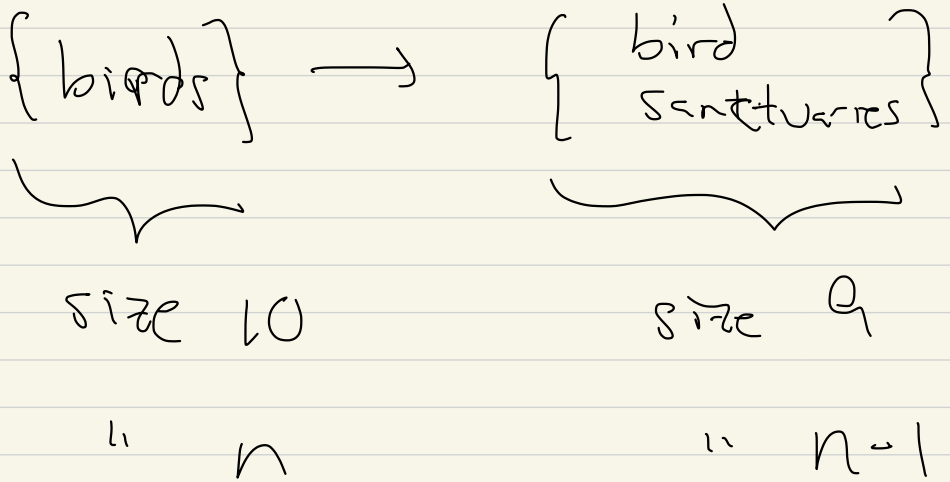 {birds} → {bird
sanctuaries}
size 10 size 9
" n " n-1